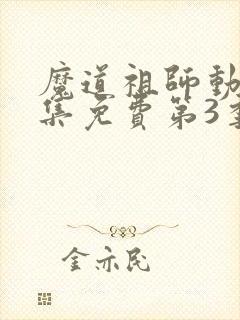 魔道祖師動
集免費第3季
金亦民